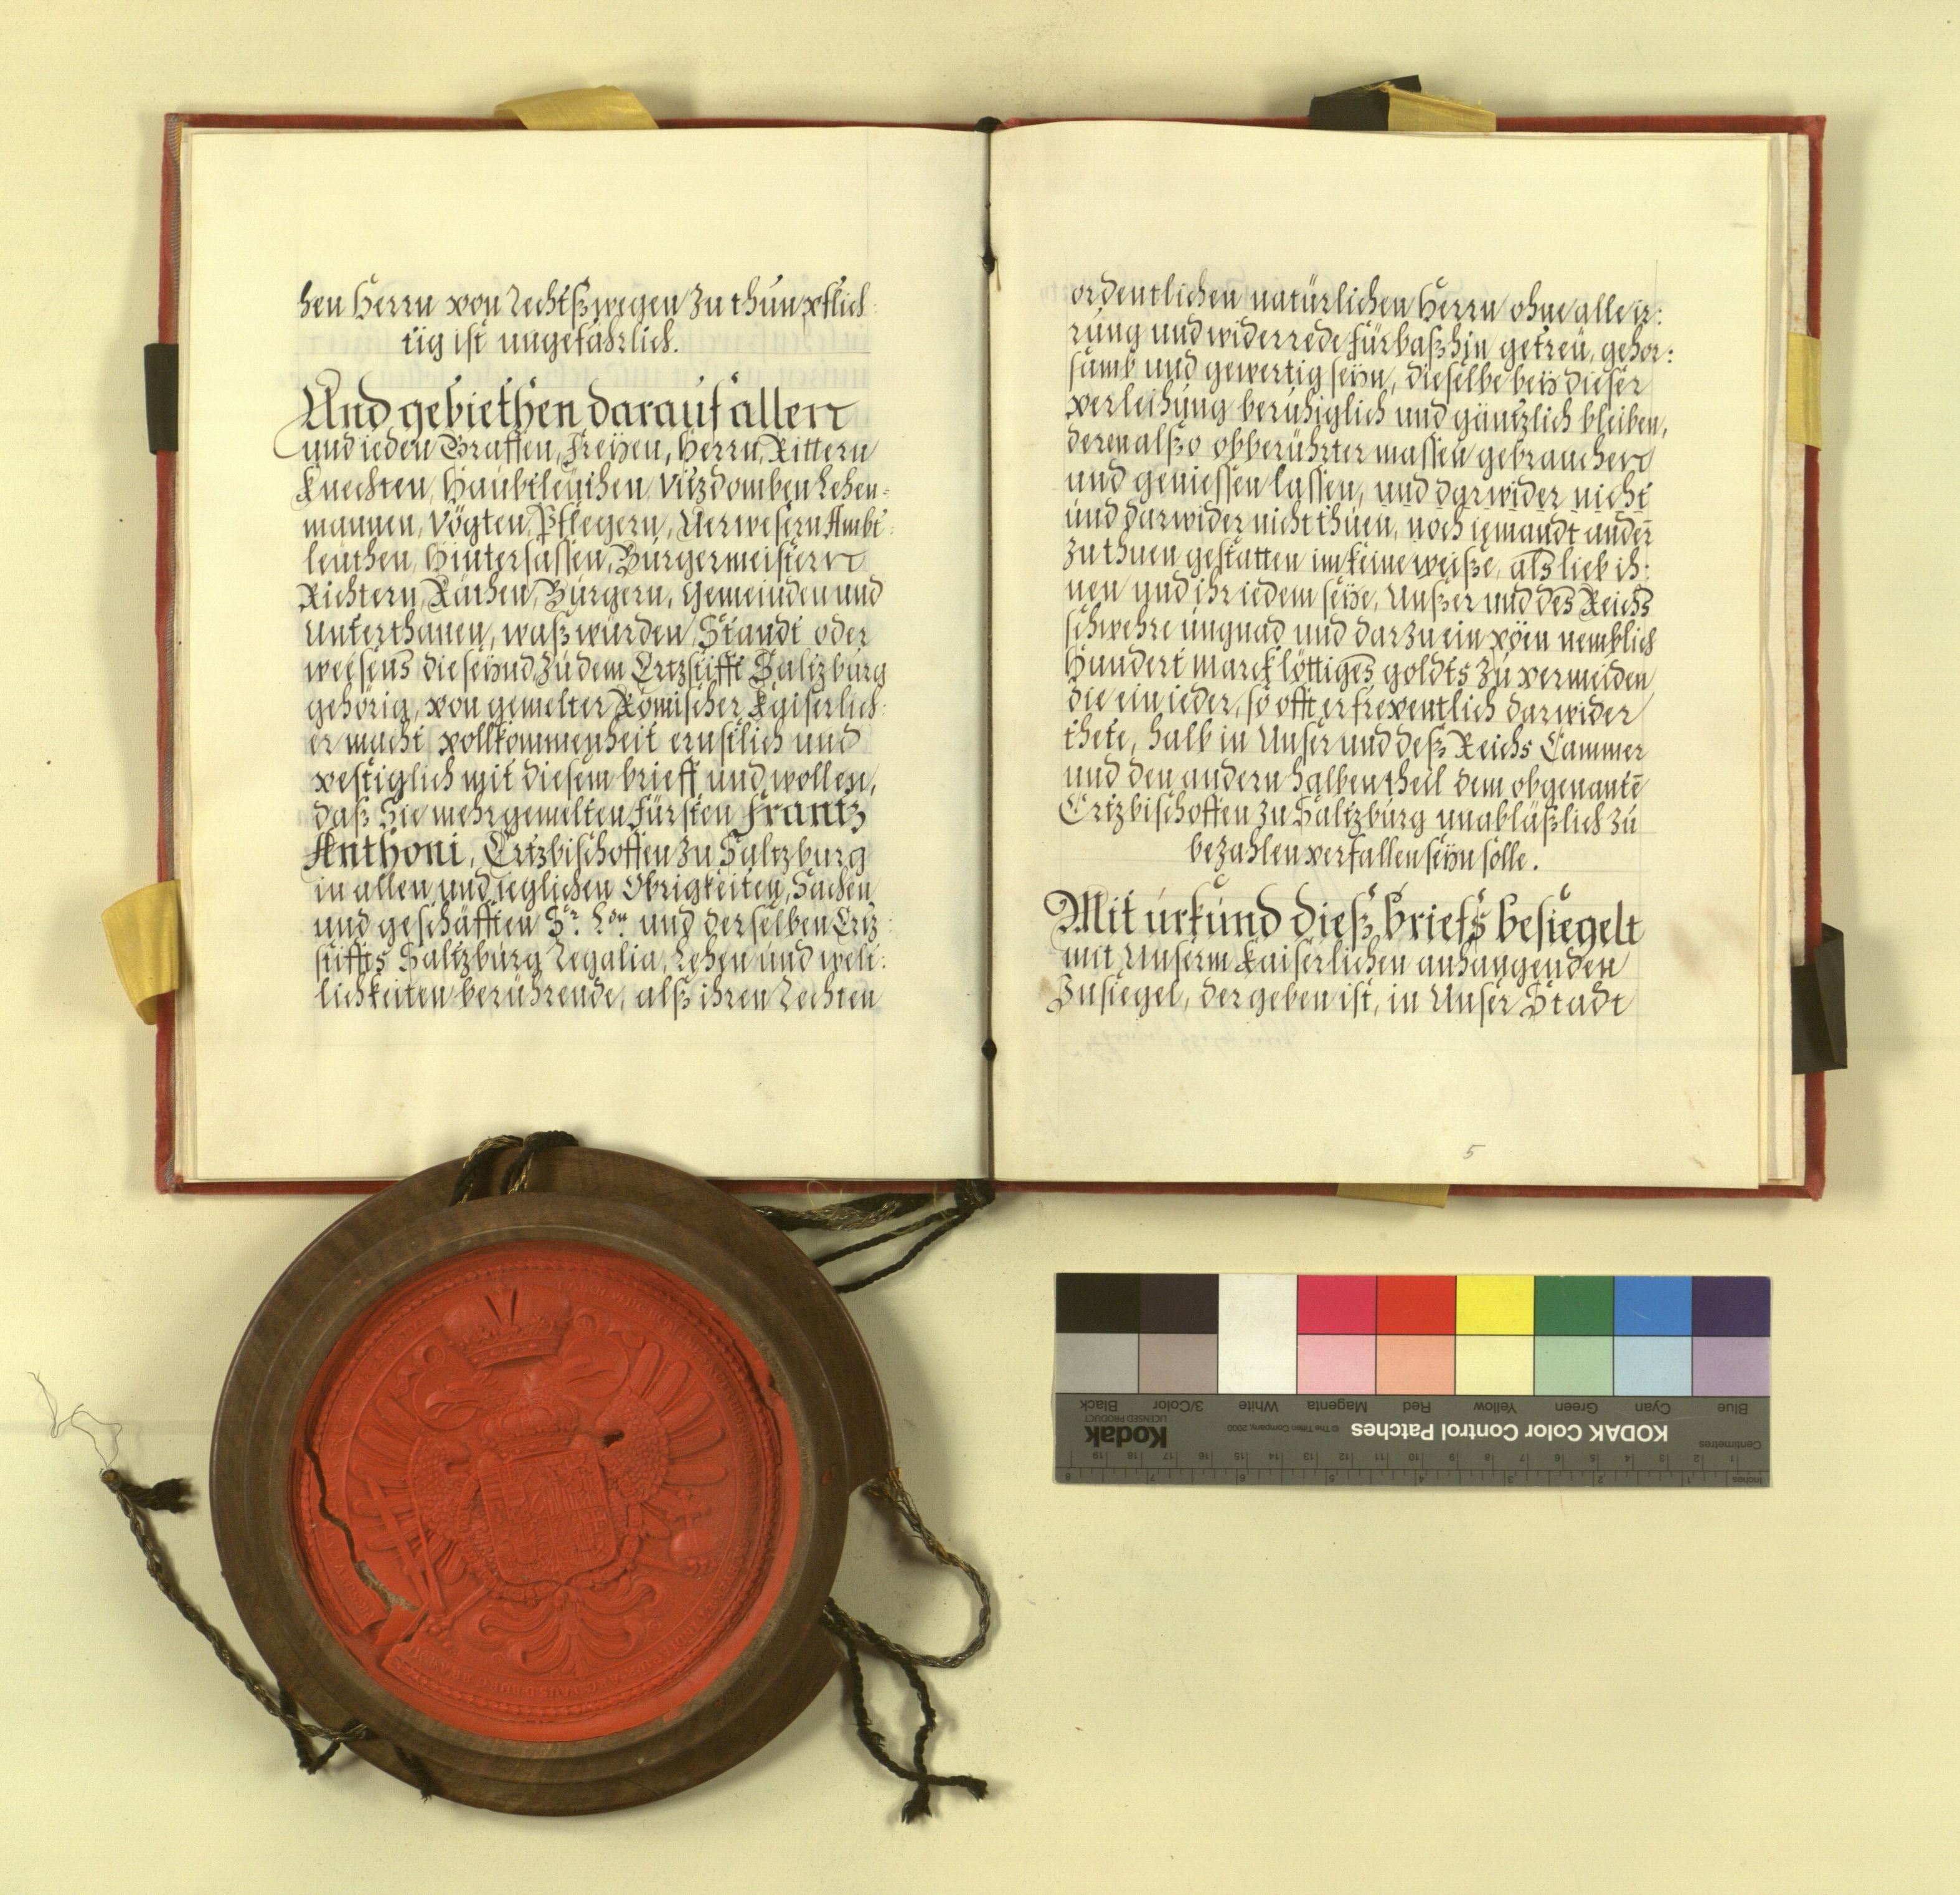 hen Herrn von Rechtß wegen zu thun pflich-
tig ist ungefährlich.
Und gebiethen darauf allen
und ieden Graffen, Freÿen, Herrn, Rittern
Knechten, Haubtleuthen, Vitzdomben Lehen-
mannen, Vögten, Pflegern, Verwesern Ambt-
leuthen, Hintersassen, Bürgermeistern
Richtern, Räthen, Bürgern, Gemeinden und
Unterthanen, waß würden, Standt oder
weesens die seÿnd, zu dem Ertzstifft Saltzburg
gehörig, von gemelter Römischer Kaiserlich-
er macht vollkommenheit ernstlich und
vestiglich mit diesem brieff und wollen,
daß Sie mehrgemelten Fürsten Frantz
Anthoni, Ertzbischoffen zu Saltzburg
in allen und ieglichen Obrigkeiten, Sachen
und geschäfften Sr. Ldn. und derselben Ertz-
stiffts Saltzburg Regalia, Lehen und welt-
lichkeiten berührende, alß ihren Rechten
ordentlichen natürlichen Herrn ohne alle ir-
rung und widerrede fürbaßhin getreü, gehor-
samb und gewertig seÿn, dieselbe beÿ dieser
verleihung beruhiglich und gäntzlich bleiben,
deren alßo obberührter massen gebrauchen
und geniessen lassen, und darwider nicht
und darwider nicht thuen, noch iemandt anderñ
zu thuen gestatten in keine weiße, alß lieb ih-
nen und ihr iedem seÿe, Unßer und des Reichs
schwehre ungnad und darzu ein pöen nemblich
Hundert marck löttiges goldts zu vermeiden
die ein ieder, so offt er freventlich darwider
thete, halb in Unser und deß Reichs Cammer
und den andern halben theil dem obgenantē
Ertzbischoffen zu Saltzburg unabläßlich zu
bezahlen verfallen seÿn solle.
Mit urkund dieß briefs besiegelt
mit Unserm Kaiserlichen anhangenden
Insiegel, der geben ist, in Unser Stadt
5
Blue Cyan Green Yellow Red Magenta White 3/Color Black
KODAK Color Control Patches © The Tiffen Company, 2000 Kodak
LICENSED PRODUCT
Centimetres 1 2 3 4 5 6 7 8 9 10 11 12 13 14 15 16 17 18 19
Inches 1 2 3 4 5 6 7 8